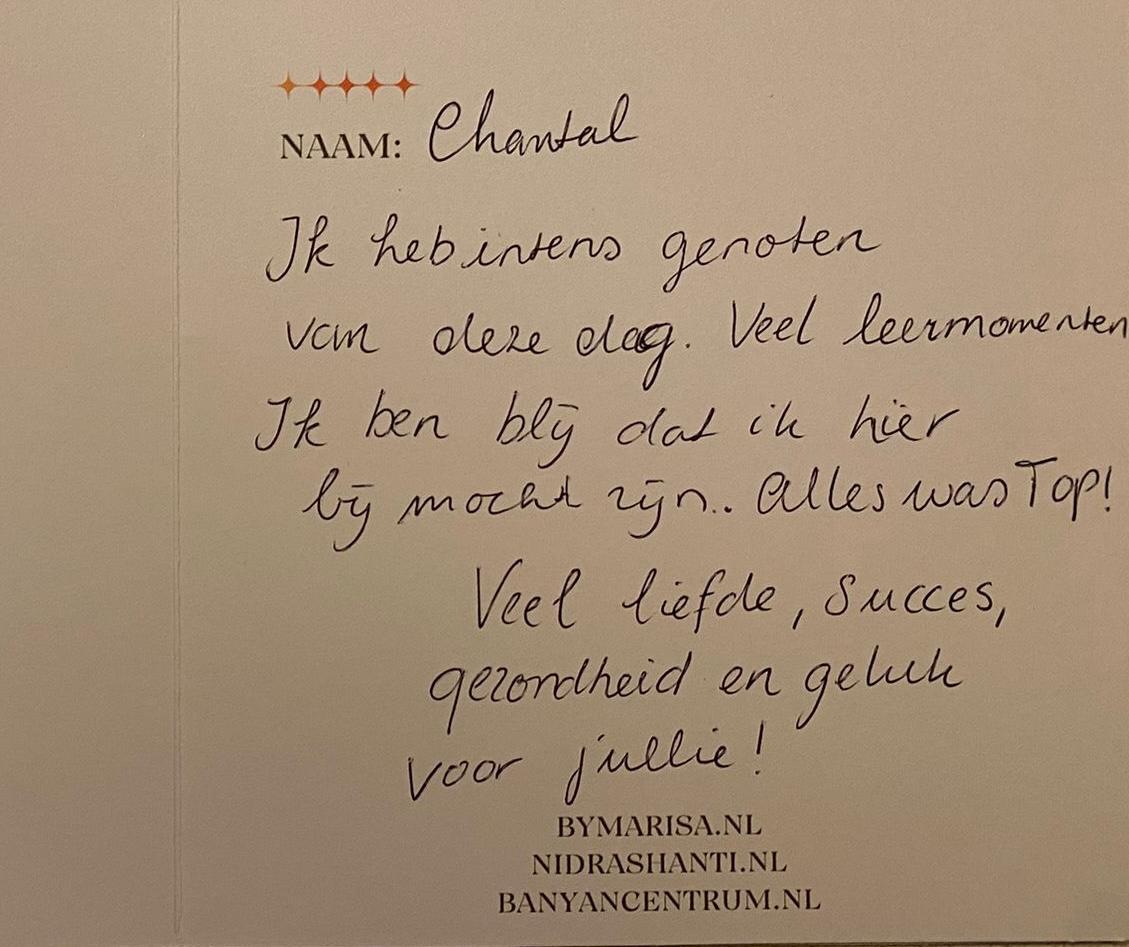 NAAM: Chantal
Ik heb intens genoten
van deze dag. Veel leermomenten
Ik ben blij dat ik hier
bij mocht zijn.. Alles was Top!
Veel liefde, succes,
gezondheid en geluk
voor jullie!
BYMARISA.NL
NIDRASHANTI.NL
BANYANCENTRUM.NL